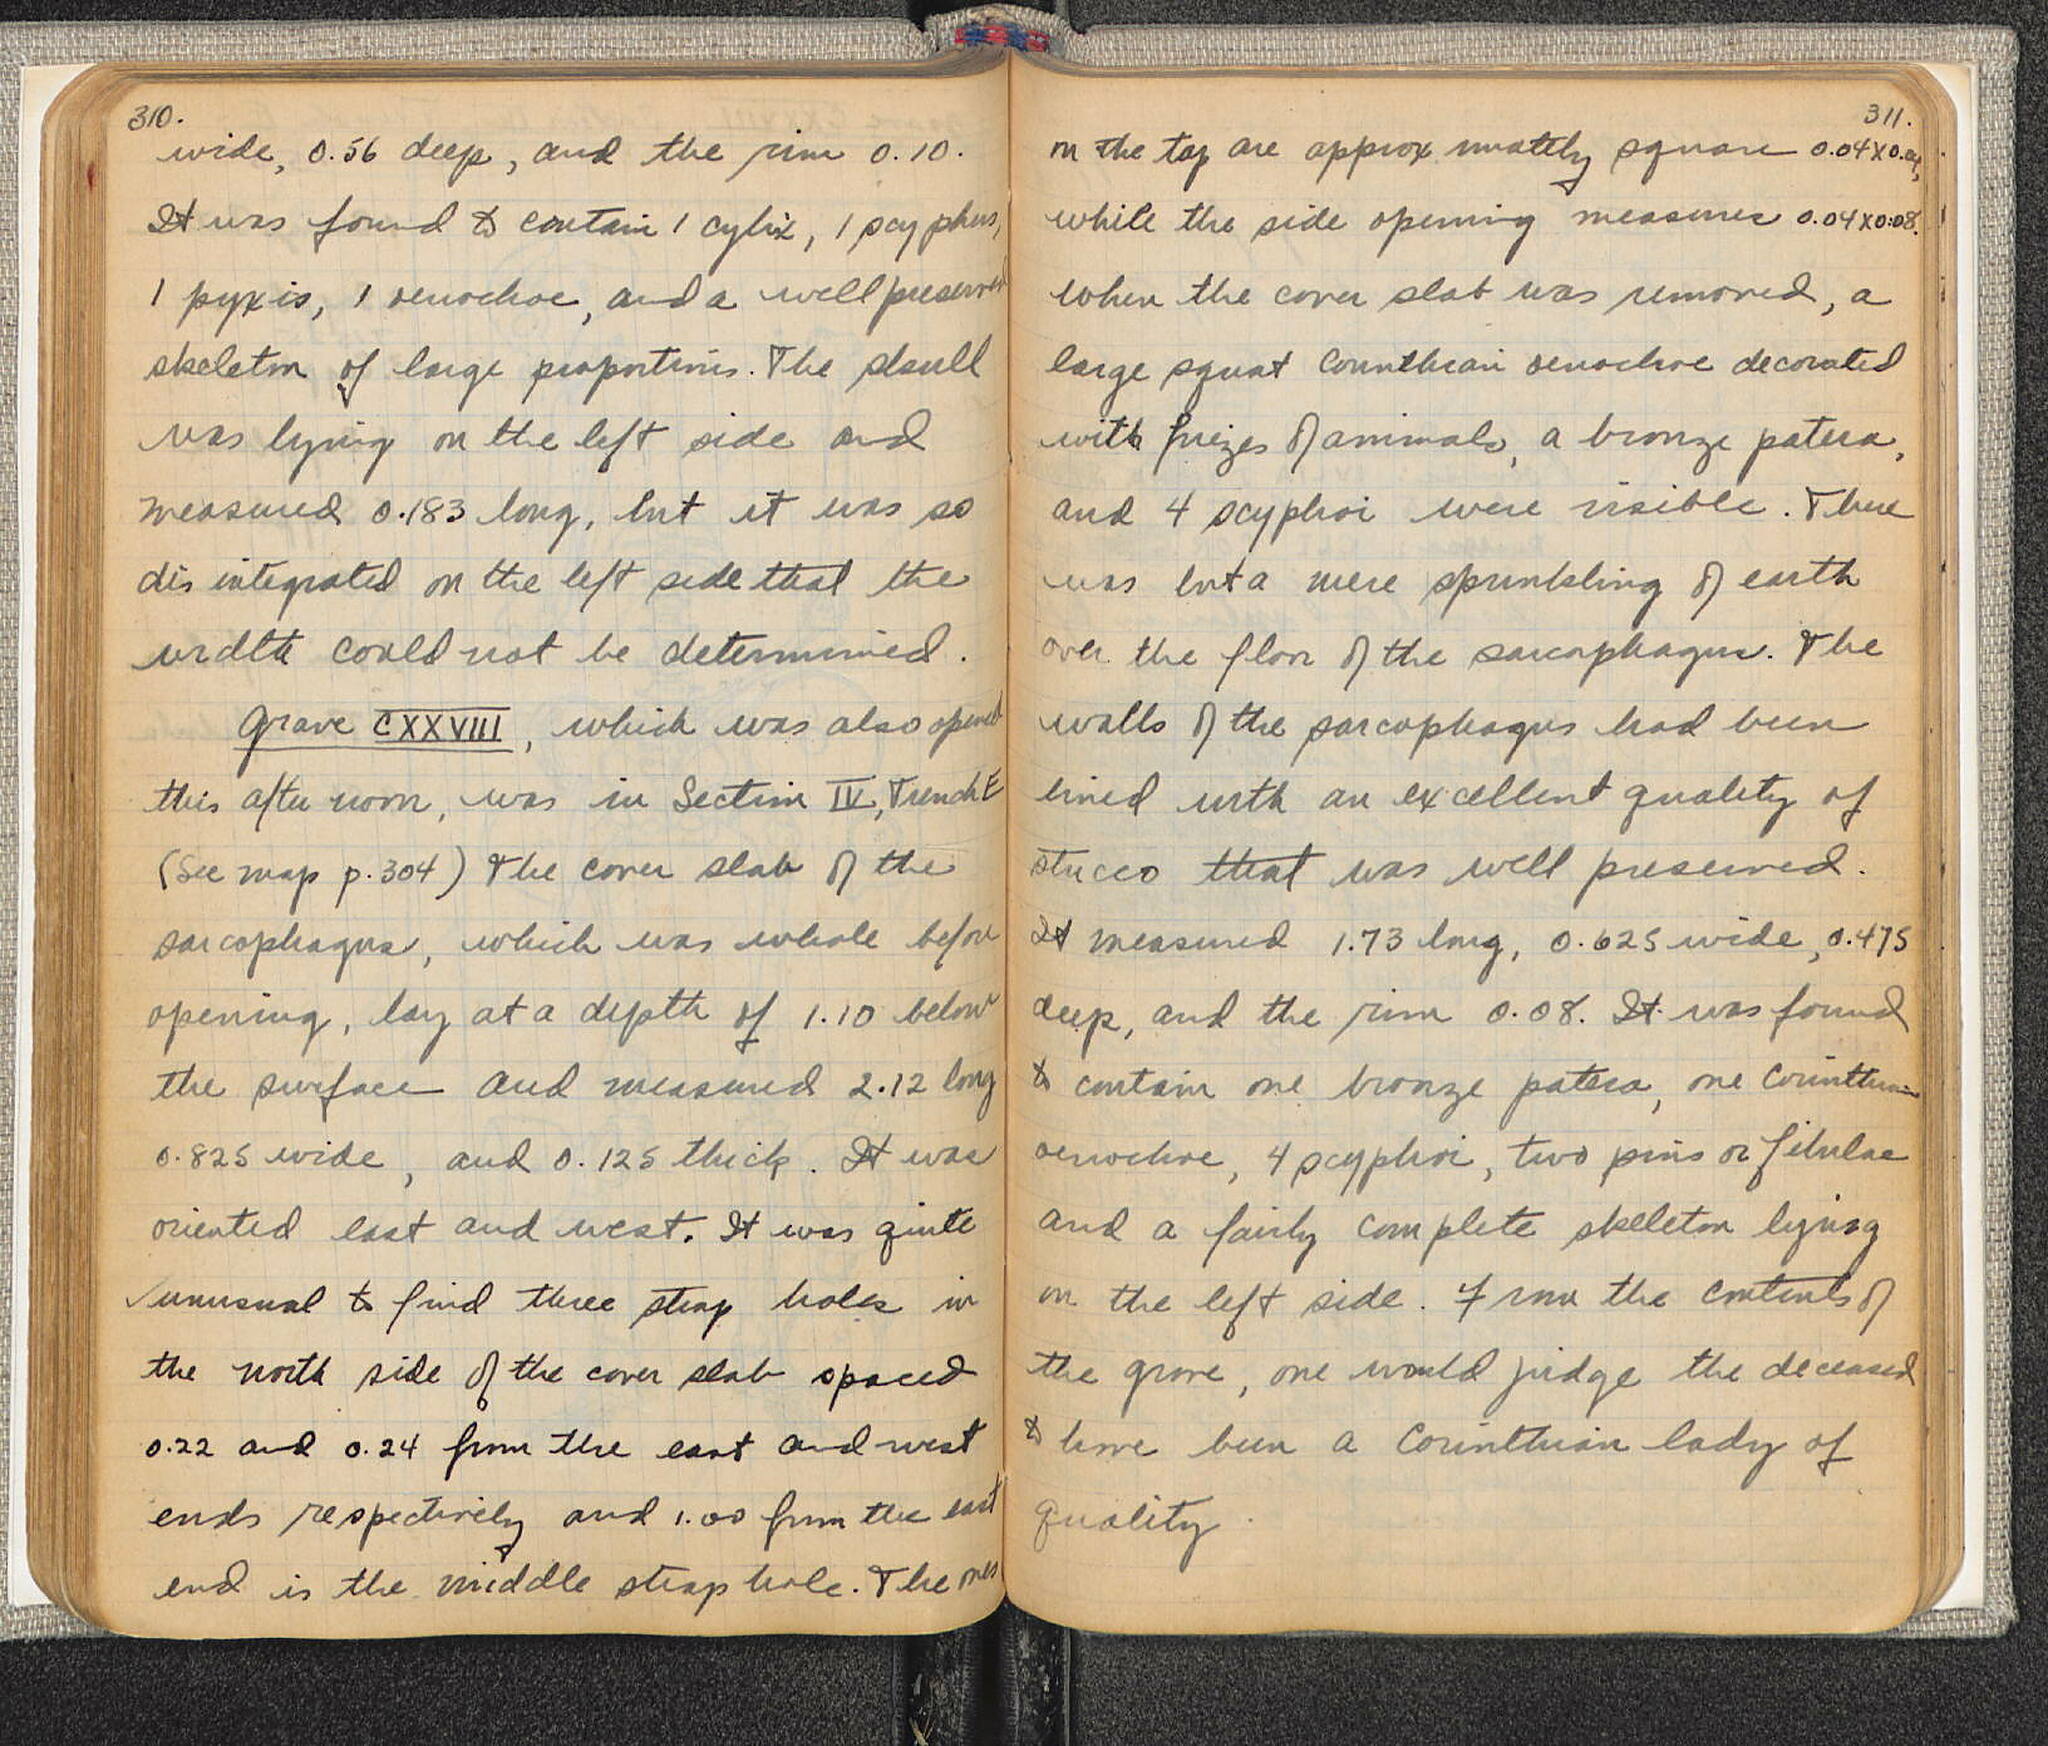 310.
wide, 0.56 deep, and the rim 0.10.
It was found to contain 1 cylix, 1 scyphus,
1 pyxis, 1 oenochoe, and a well preserved
skeleton of large proportions. The skull
was lying on the left side and
measured 0.183 long, but it was so
disintegrated on the left side that the
width could not be determined.
Grave CXXVIII, which was also opened
this afternoon, was in Section IV, Trench E
(See map p. 304) The cover slab of the
sarcophagus, which was whole before
opening, lay at a depth of 1.10 below
the surface and measured 2.12 long
0.825 wide, and 0.125 thick. It was
oriented east and west. It was quite
unusual to find three strap holes in
the north side of the cover slab spaced
0.22 and 0.24 from the east and west
ends respectively and 1.00 from the east
end is the middle strap hole. The ones
311.
on the top are approximately square 0.04 x 0.04,
while the side opening measures 0.04 x 0.08.
When the cover slab was removed, a
large squat Corinthian oenochoe decorated
with friezes of animals, a bronze patera,
and 4 scyphoi were visible. There
was but a mere sprinkling of earth
over the floor of the sarcophagus. The
walls of the sarcophagus had been
lined with an excellent quality of
stucco that was well preserved.
It measured 1.73 long, 0.625 wide, 0.475
deep, and the rim 0.08. It was found
to contain one bronze patera, one Corinthian
oenochoe, 4 scyphoi, two pins or fibulae
and a fairly complete skeleton lying
on the left side. From the contents of
the grave, one would judge the deceased
to have been a Corinthian lady of
quality.